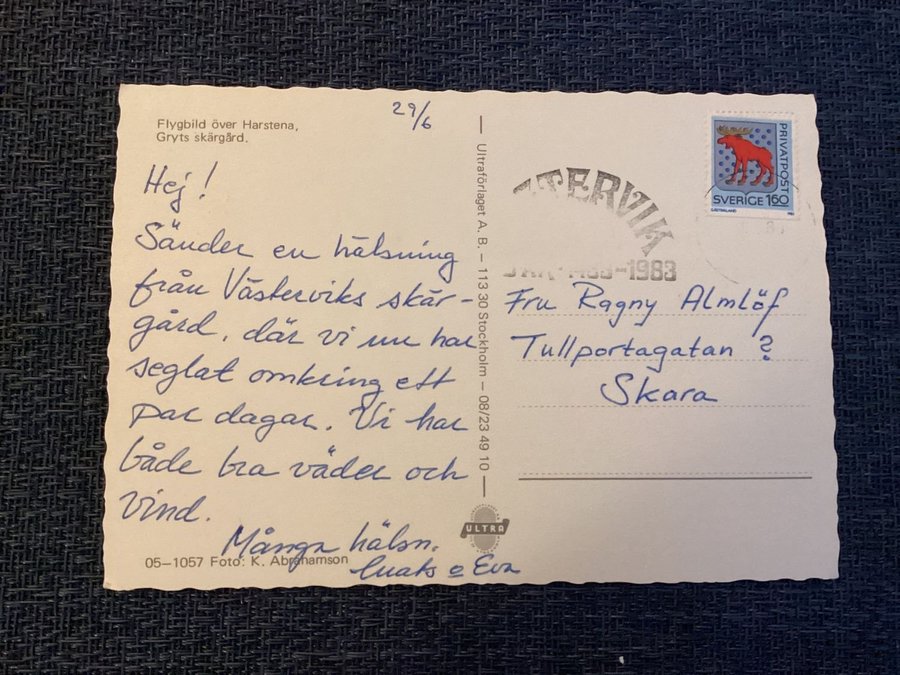 Flygbild över Harstena,
Gryts skärgård.
29/6
Hej!
Sänder en hälsning
från Västerviks skär-
gård, där vi nu har
seglat omkring ett
par dagar. Vi har
både bra väder och
vind.
Många hälsn.
Mats o Eva
05–1057 Foto: K. Abrahamson
Ultraförlaget A. B. – 113 30 Stockholm – 08/23 49 10
ULTRA
TERVIK
–1983
PRIVATPOST
SVERIGE 160
Fru Ragny Almlöf
Tullportagatan ?
Skara